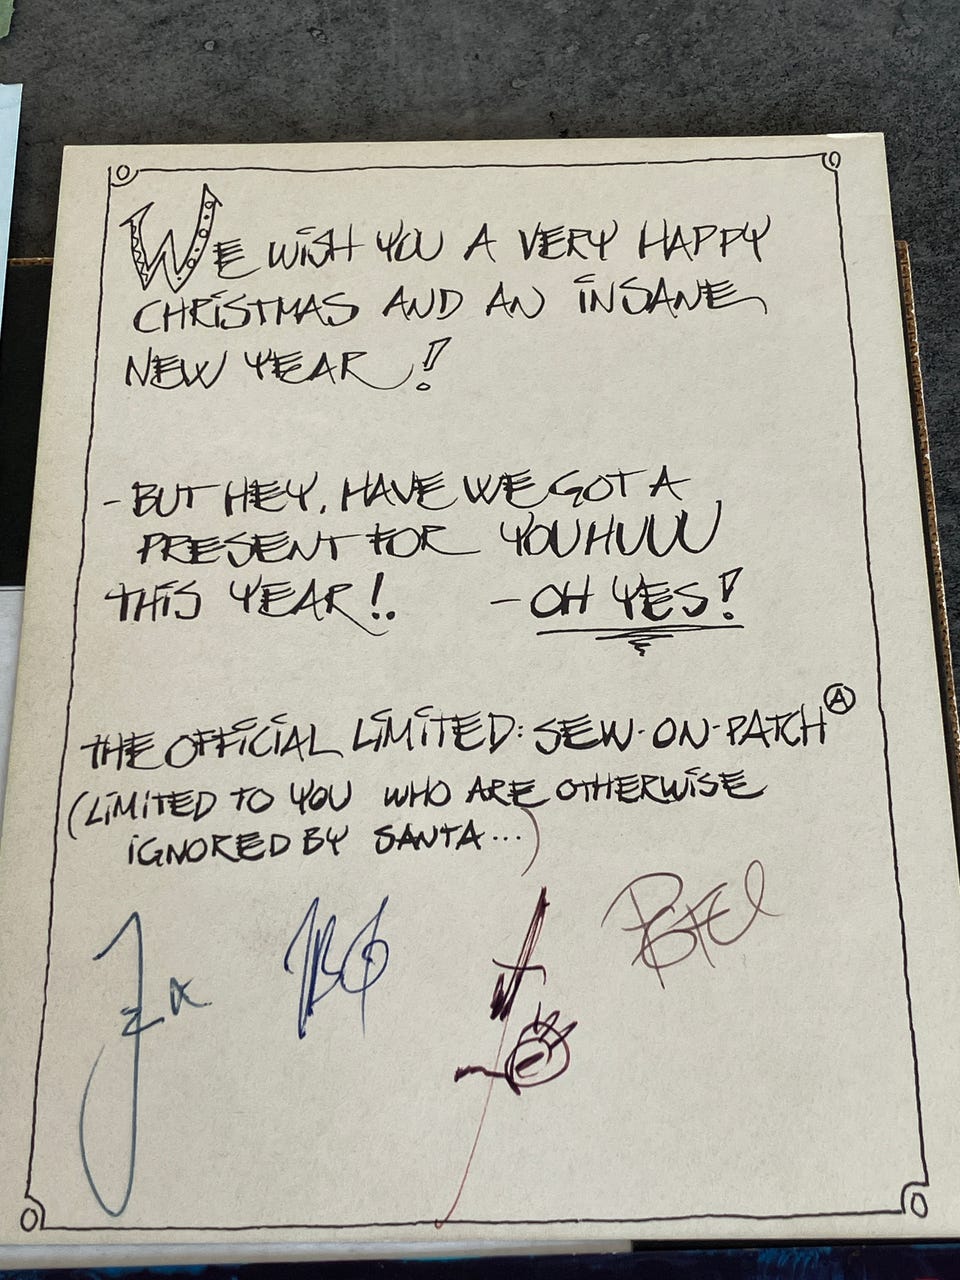 WE WISH YOU A VERY HAPPY
CHRISTMAS AND AN INSANE
NEW YEAR!
- BUT HEY, HAVE WE GOT A
PRESENT FOR YOUHUUU
THIS YEAR!. - OH YES!
THE OFFICIAL LIMITED: SEW-ON-PATCH Ⓐ
(LIMITED TO YOU WHO ARE OTHERWISE
IGNORED BY SANTA...)